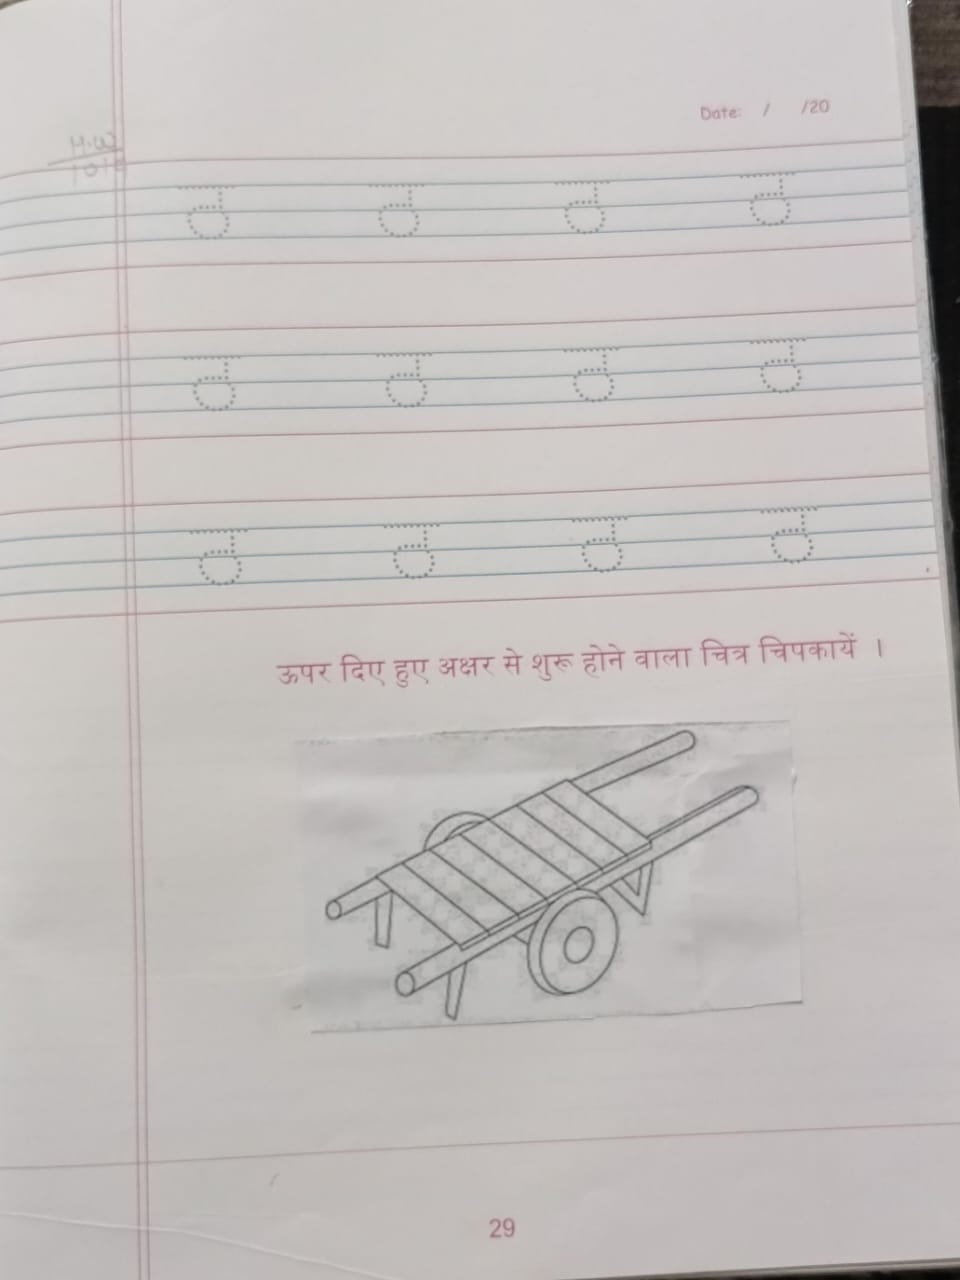 Date: / /20
H.W
ठ ठ ठ ठ
ठ ठ ठ ठ
ठ ठ ठ ठ
ऊपर दिए हुए अक्षर से शुरू होने वाला चित्र चिपकायें ।
29